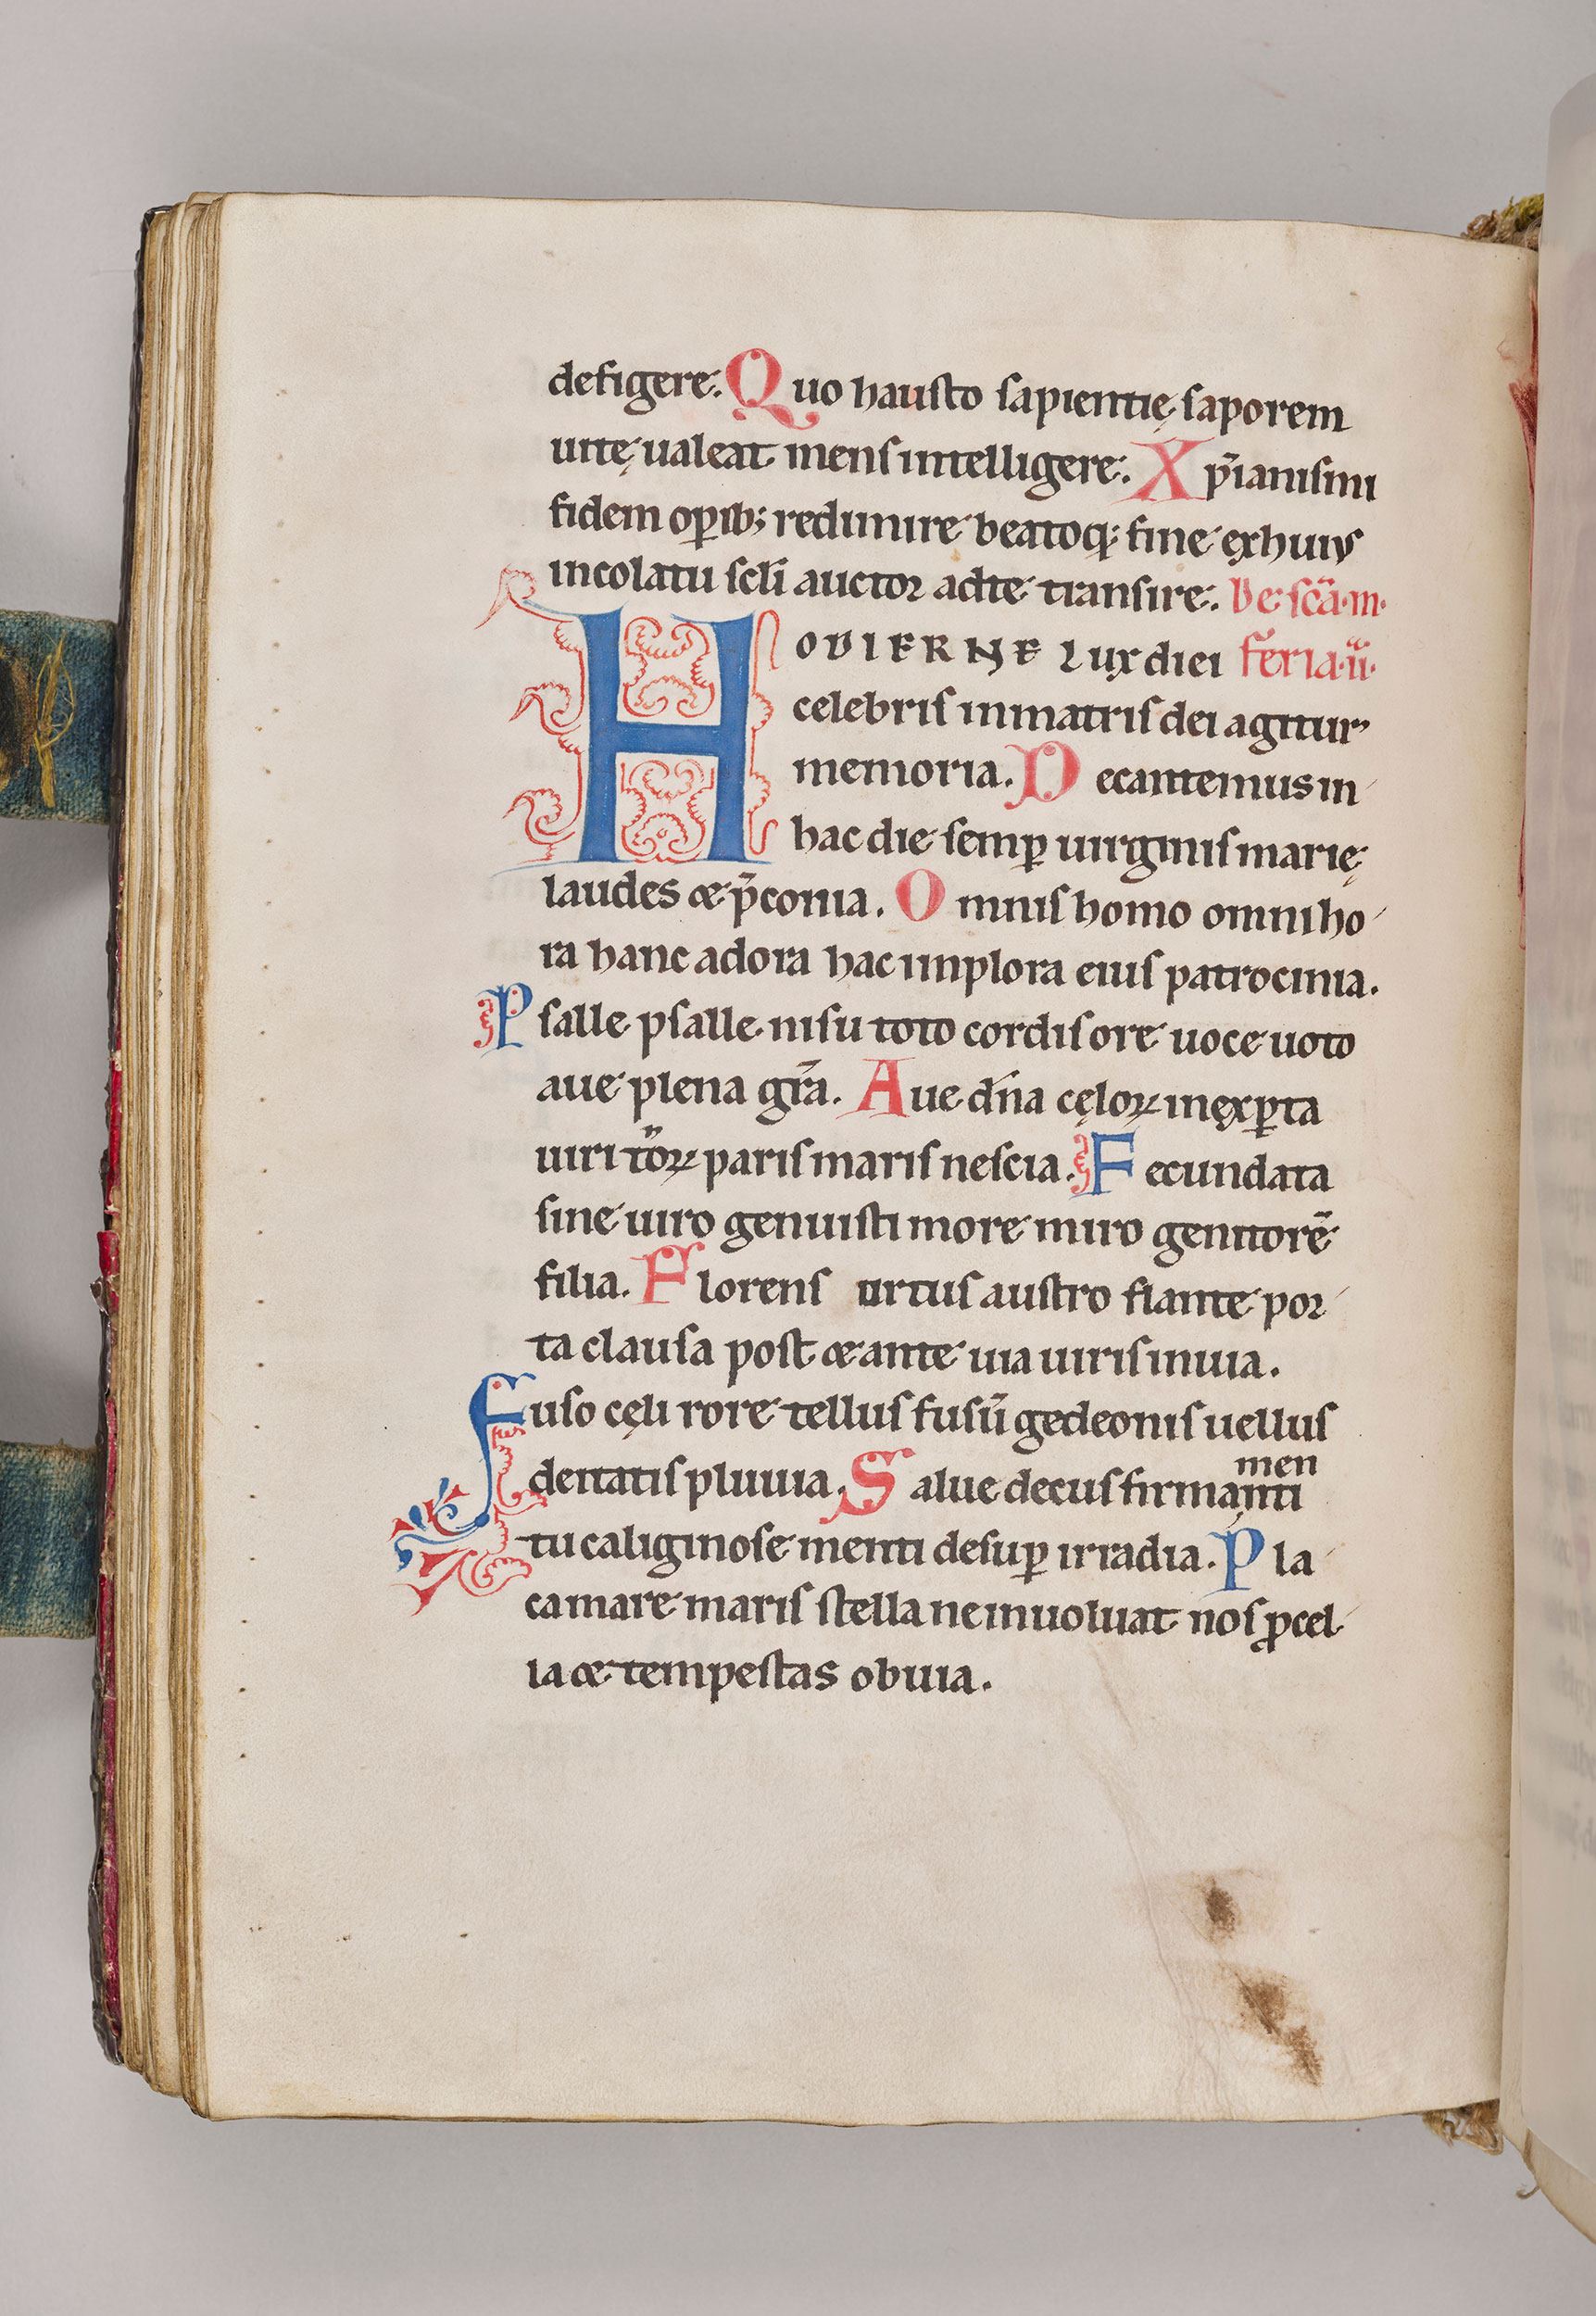 defigere. Quo hausto sapientię saporem
uitę ualeat mens intelligere. Xp̄ianismi
fidem oꝑib; redimire beatoq; fine ex huius
incolatu scl̄i auctor ad te transire. De sc̄a·m·
HODIERNE lux diei feria·ii·
celebris in matris dei agitur
memoria. Decantemus in
hac die semꝑ uirginis marię
laudes et p̄conia. Omnis homo omni ho
ra hanc adora hac implora eius patrocinia.
Psalle psalle nisu toto cordis ore uoce uoto
aue plena gr̄a. Aue dn̄a cęloꝝ inexꝑta
uiri toꝝ paris maris nescia. Fecundata
sine uiro genuisti more miro genitorē
filia. Florens ortus austro flante por
ta clausa post et ante uia uiris inuia.
Fuso cęli rore tellus fusū gedeonis uellus
deitatis pluuia. Salue decus firmanti
men
tu caliginose menti desuꝑ irradia. Pla
ca mare maris stella ne inuoluat nos ꝓcel
la et tempestas obuia.